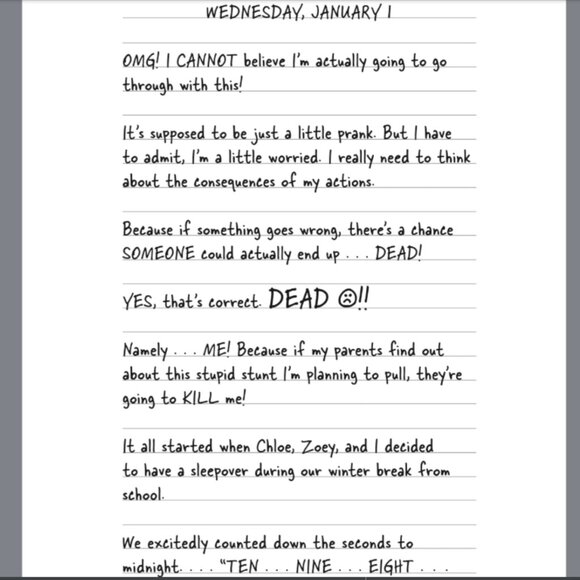 WEDNESDAY, JANUARY 1
OMG! I CANNOT believe I'm actually going to go
through with this!
It's supposed to be just a little prank. But I have
to admit, I'm a little worried. I really need to think
about the consequences of my actions.
Because if something goes wrong, there's a chance
SOMEONE could actually end up . . . DEAD!
YES, that's correct. DEAD ☹!!
Namely . . . ME! Because if my parents find out
about this stupid stunt I'm planning to pull, they're
going to KILL me!
It all started when Chloe, Zoey, and I decided
to have a sleepover during our winter break from
school.
We excitedly counted down the seconds to
midnight. . . . "TEN . . . NINE . . . EIGHT . . .